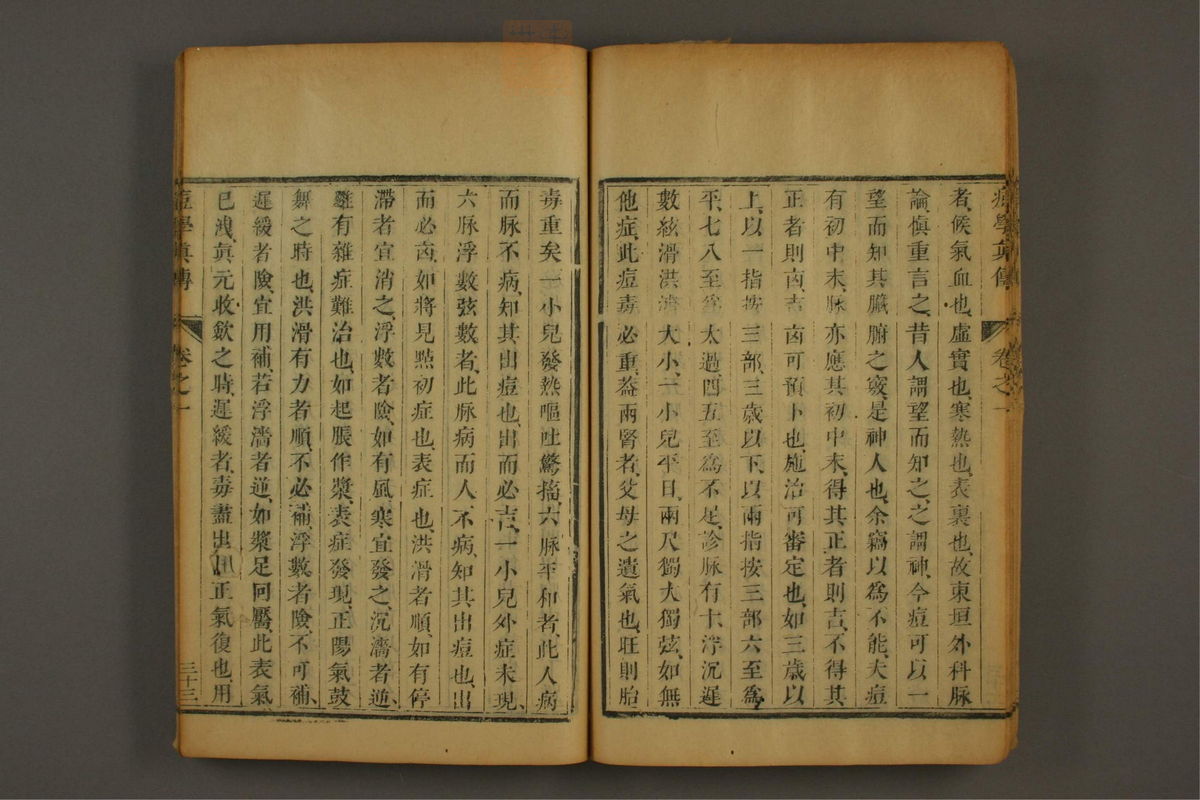 痘學真傳
卷之一
者、候氣血也、虛實也、寒熱也、表裏也、故東垣外科脉
論、慎重言之、昔人謂望而知之、之謂神、今痘可以一
望而知其臟腑之竅、是神人也、余竊以爲不能、夫痘
有初中末、脉亦應其初中末、得其正者則吉、不得其
正者則凶、吉凶可預卜也、施治可審定也、如三歲以
上、以一指按三部、三歲以下、以兩指按三部、六至爲
平、七八至爲太過、四五至爲不足、診脉有十、浮沉遲
數絃滑洪濇大小、一小兒平日、兩尺獨大獨弦、如無
他症、此痘毒必重、蓋兩腎者、父母之遺氣也、旺則胎
毒重矣、一小兒發熱嘔吐驚搐、六脉平和者、此人病
而脉不病、知其出痘也、出而必吉、一小兒外症未現、
六脉浮數弦數者、此脉病而人不病、知其出痘也、出
而必凶、如將見點初症也、表症也、洪滑者順、如有停
滯者宜消之、浮數者險、如有風寒宜發之、沉濇者逆、
雖有雜症難治也、如起脹作漿、表症發現、正陽氣鼓
舞之時也、洪滑有力者順、不必補、浮數者險、不可補、
遲緩者險、宜用補、若浮濇者逆、如漿足回靨、此表氣
已洩、眞元收歛之時、遲緩者、毒盡出而正氣復也、用
痘學眞傳
卷之一
三十三